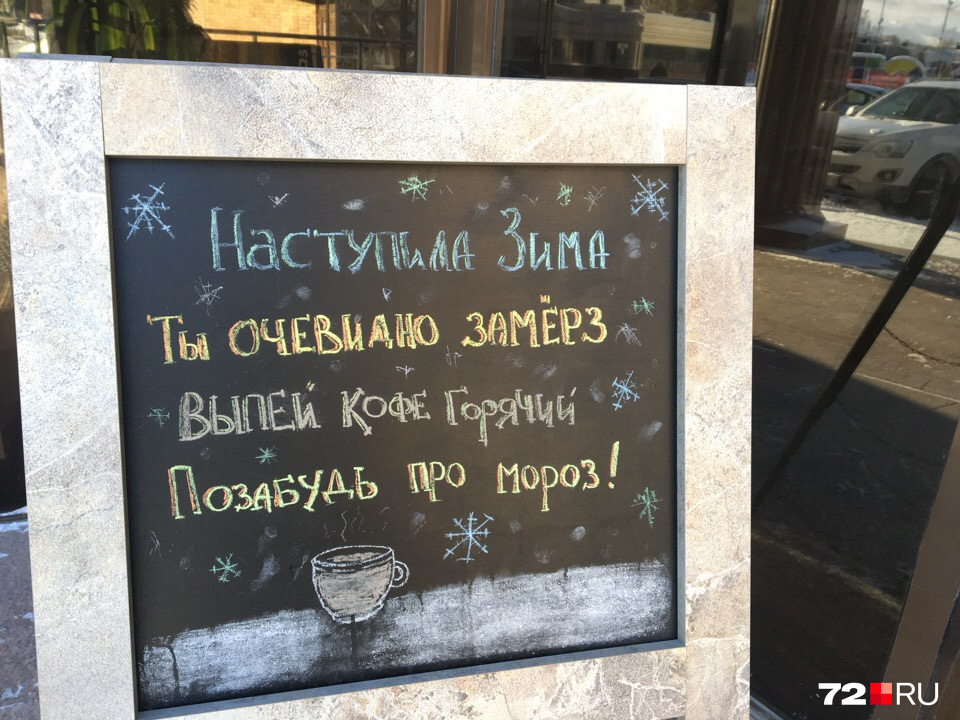 Наступила Зима
Ты очевидно замёрз
Выпей Кофе Горячий
Позабудь про мороз!
72.RU